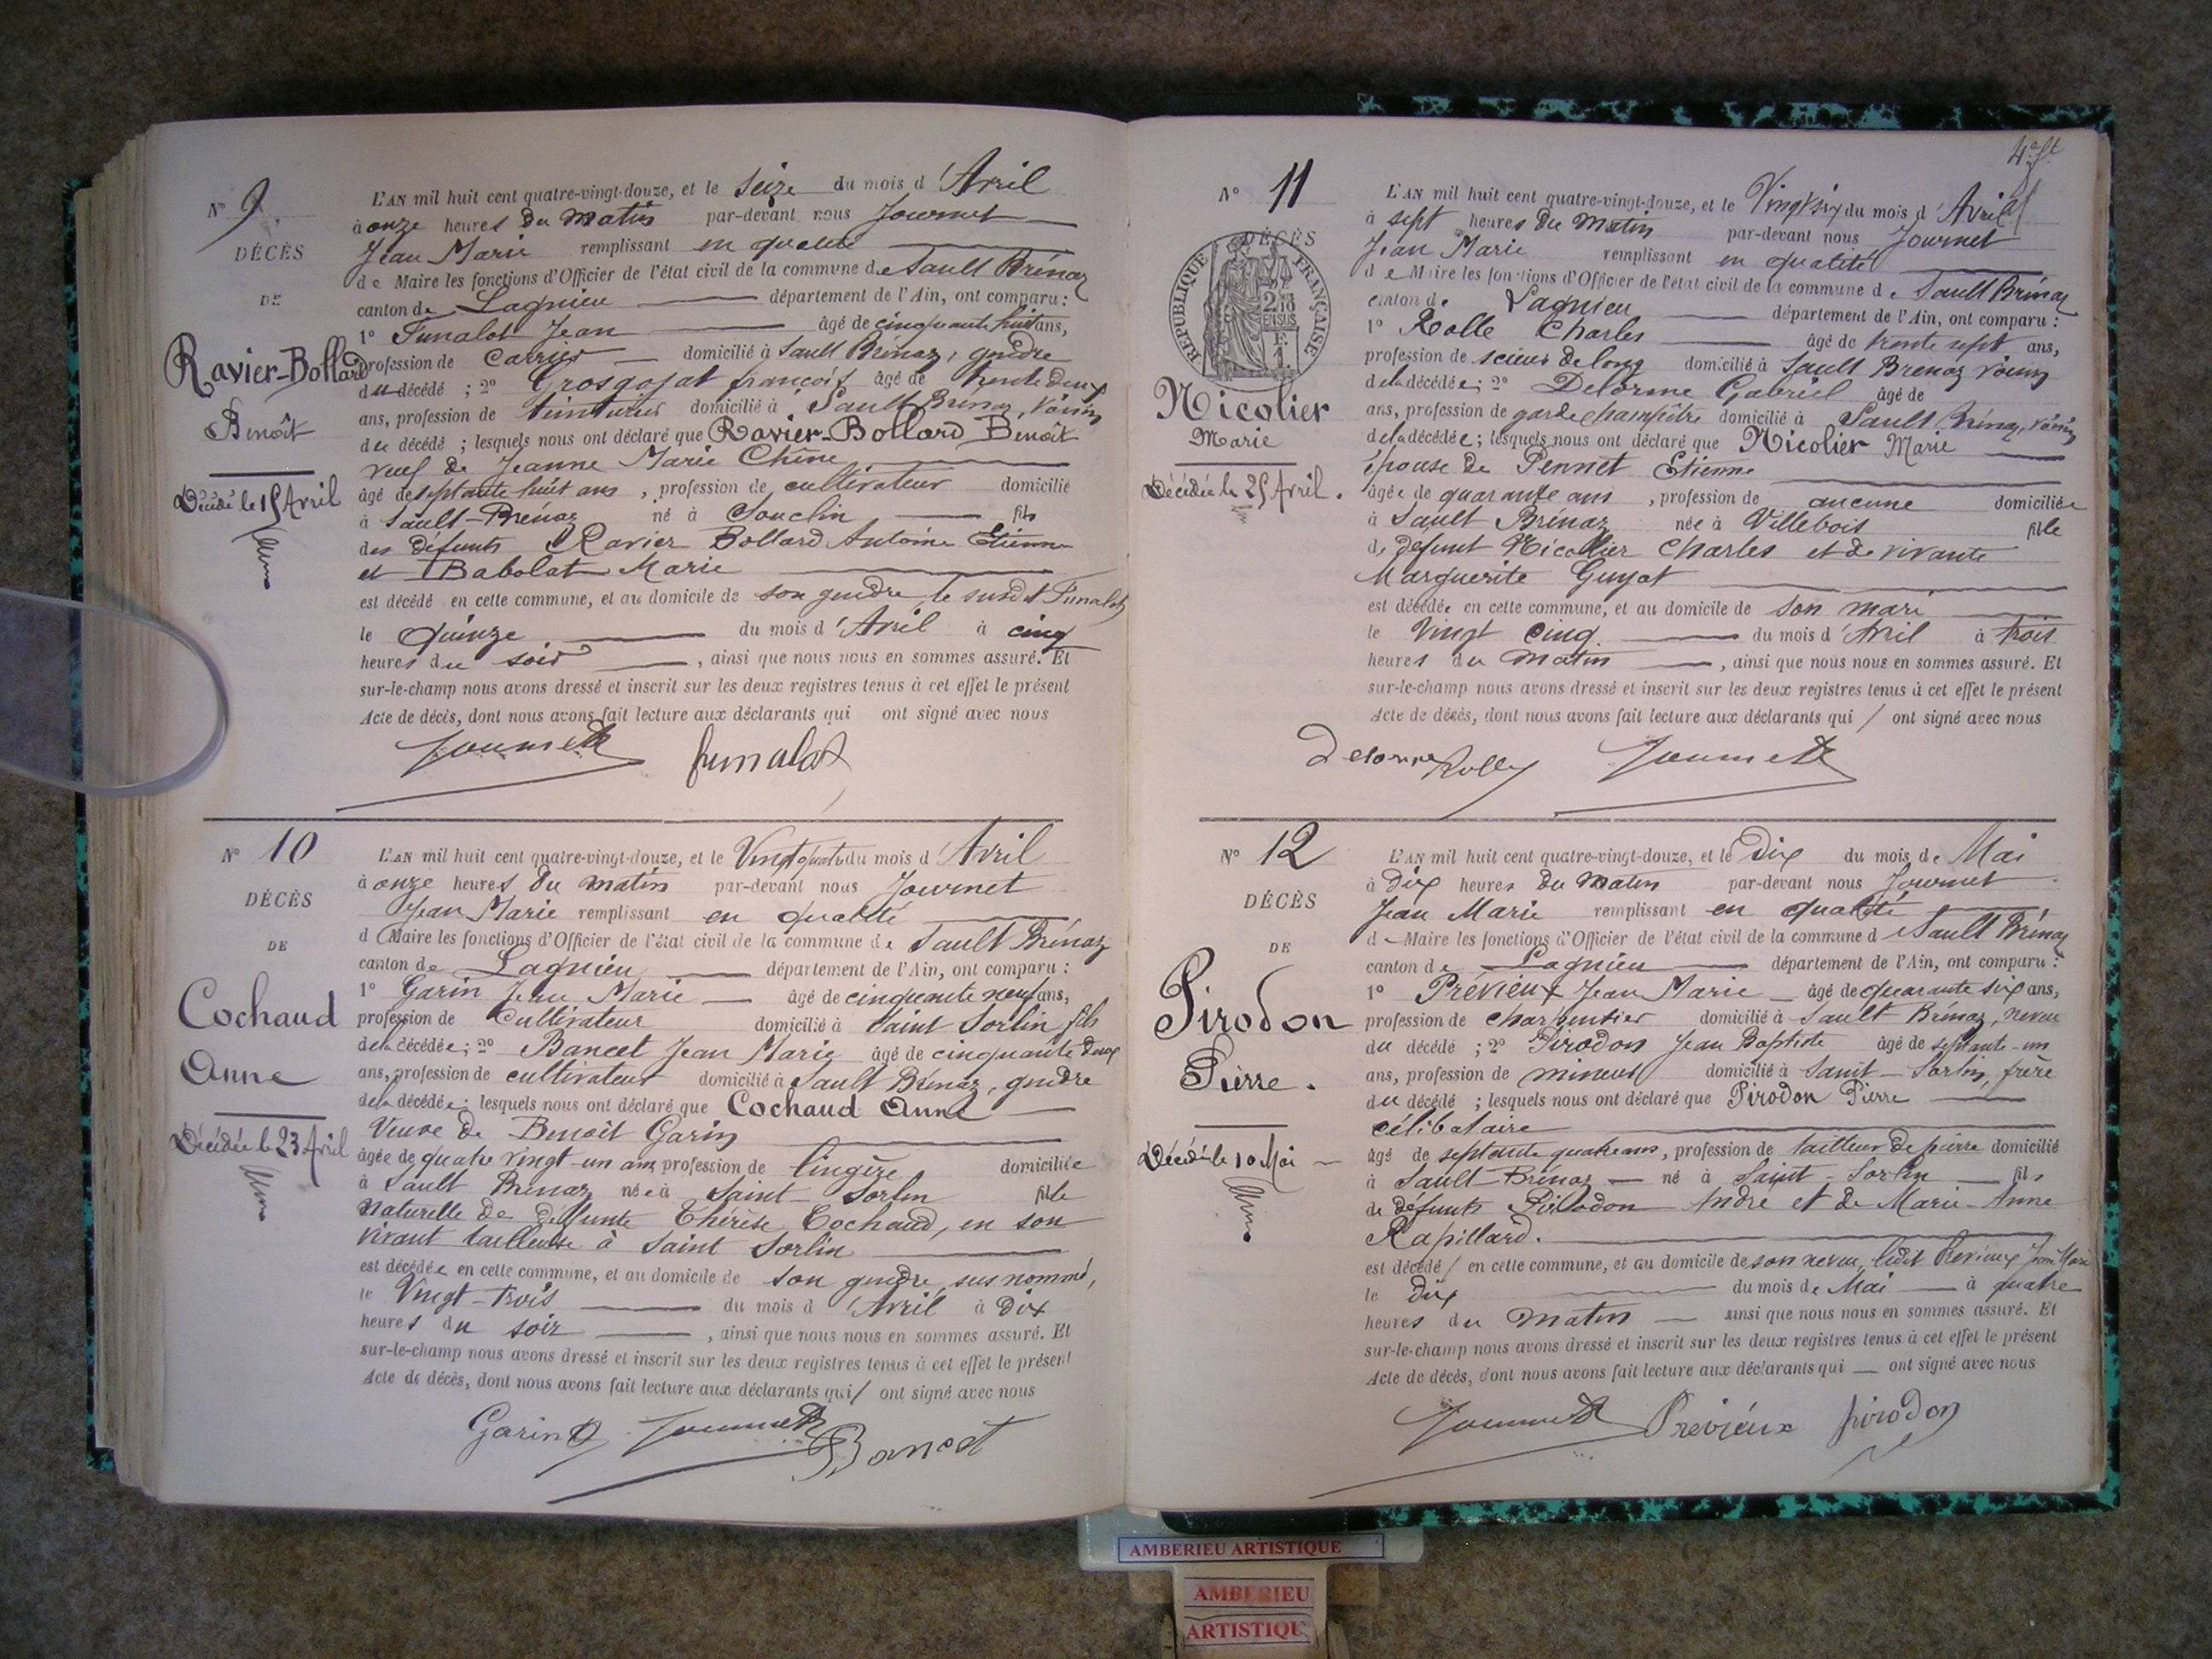 N° 9
DÉCÈS
DE
Ravier-Bollard
Benoît
Décédé le 15 Avril
L'AN mil huit cent quatre-vingt-douze, et le Seize du mois d'Avril
à onze heures du matin par-devant nous Journet
Jean Marie remplissant en qualité
de Maire les fonctions d'Officier de l'état civil de la commune de Sault Brénaz
canton de Lagnieu département de l'Ain, ont comparu :
1° Funalot Jean âgé de cinquante huit ans,
profession de Carrier domicilié à Sault Brénaz, gendre
du décédé ; 2° Grosgojat françois âgé de trente deux
ans, profession de teinturier domicilié à Sault Brénaz, voisin
du décédé ; lesquels nous ont déclaré que Ravier-Bollard Benoît
veuf de Jeanne Marie Chêne
âgé de septante huit ans, profession de cultivateur domicilié
à Sault-Brénaz né à Souclin fils
des défunts Ravier Bollard Antoine Etienne
et Babolat Marie
est décédé en cette commune, et au domicile de son gendre, le susdit Funalot
le Quinze du mois d'Avril à cinq
heures du soir, ainsi que nous nous en sommes assuré. Et
sur-le-champ nous avons dressé et inscrit sur les deux registres tenus à cet effet le présent
Acte de décès, dont nous avons fait lecture aux déclarants qui ont signé avec nous
Journet funalot
N° 10
DÉCÈS
DE
Cochaud
Anne
Décédée le 23 Avril
L'AN mil huit cent quatre-vingt-douze, et le Vingt quatre du mois d'Avril
à onze heures du matin par-devant nous Journet
Jean Marie remplissant en qualité
d Maire les fonctions d'Officier de l'état civil de la commune de Sault Brénaz
canton de Lagnieu département de l'Ain, ont comparu :
1° Garin Jean Marie âgé de cinquante neuf ans,
profession de Cultivateur domicilié à Saint Sorlin fils
de la décédée ; 2° Bancet Jean Marie âgé de cinquante deux
ans, profession de cultivateur domicilié à Sault Brénaz, gendre
de la décédée ; lesquels nous ont déclaré que Cochaud Anne
Veuve de Benoît Garin
âgée de quatre vingt-un ans profession de lingère domiciliée
à Sault Brénaz née à Saint-Sorlin fille
naturelle de deffunte Thérèse Cochaud, en son
vivant tailleuse à Saint Sorlin
est décédée en cette commune, et au domicile de son gendre, sus nommé,
le Vingt-trois du mois d'Avril à Dix
heures du soir, ainsi que nous nous en sommes assuré. Et
sur-le-champ nous avons dressé et inscrit sur les deux registres tenus à cet effet le présent
Acte de décès, dont nous avons fait lecture aux déclarants qui / ont signé avec nous
Garin Journet Bancet
N° 11
DÉCÈS
RÉPUBLIQUE FRANÇAISE
Nicolier
Marie
Décédée le 25 Avril.
L'AN mil huit cent quatre-vingt-douze, et le Vingt six du mois d'Avril
à sept heures du matin par-devant nous Journet
Jean Marie remplissant en qualité
de Maire les fonctions d'Officier de l'état civil de la commune de Sault Brénaz
canton de Lagnieu département de l'Ain, ont comparu :
1° Rolle Charles âgé de trente sept ans,
profession de scieur de long domicilié à Sault Brénaz voisin
de la décédée ; 2° Delorme Gabriel âgé de
ans, profession de garde champêtre domicilié à Sault Brénaz, voisin
de la décédée ; lesquels nous ont déclaré que Nicolier Marie
épouse de Pennet Etienne
âgée de quarante ans, profession de aucune domiciliée
à Sault Brénaz née à Villebois fille
de défunt Nicollier Charles et de vivante
Marguerite Guyot
est décédée en cette commune, et au domicile de son mari
le Vingt cinq du mois d'Avril à trois
heures du matin, ainsi que nous nous en sommes assuré. Et
sur-le-champ nous avons dressé et inscrit sur les deux registres tenus à cet effet le présent
Acte de décès, dont nous avons fait lecture aux déclarants qui / ont signé avec nous
Delorme Rolle Journet
N° 12
DÉCÈS
DE
Pirodon
Pierre.
Décédé le 10 Mai
L'AN mil huit cent quatre-vingt-douze, et le Dix du mois de Mai
à Dix heures du Matin par-devant nous Journet
Jean Marie remplissant en qualité
de Maire les fonctions d'Officier de l'état civil de la commune de Sault Brénaz
canton de Lagnieu département de l'Ain, ont comparu :
1° Prévieux Jean Marie âgé de quarante six ans,
profession de charpentier domicilié à Sault Brénaz, neveu
du décédé ; 2° Pirodon Jean Baptiste âgé de septante-un
ans, profession de mineur domicilié à Saint-Sorlin, frère
du décédé ; lesquels nous ont déclaré que Pirodon Pierre
célibataire
âgé de septante quatre ans, profession de tailleur de pierre domicilié
à Sault-Brénaz né à Saint-Sorlin fils
de défunts Pirodon André et de Marie-Anne
Rapillard.
est décédé / en cette commune, et au domicile de son neveu, ledit Prévieux Jean Marie
le dix du mois de Mai à quatre
heures du matin ainsi que nous nous en sommes assuré. Et
sur-le-champ nous avons dressé et inscrit sur les deux registres tenus à cet effet le présent
Acte de décès, dont nous avons fait lecture aux déclarants qui ont signé avec nous
Journet Prévieux pirodon
AMBERIEU ARTISTIQUE
AMBERIEU
ARTISTIQUE